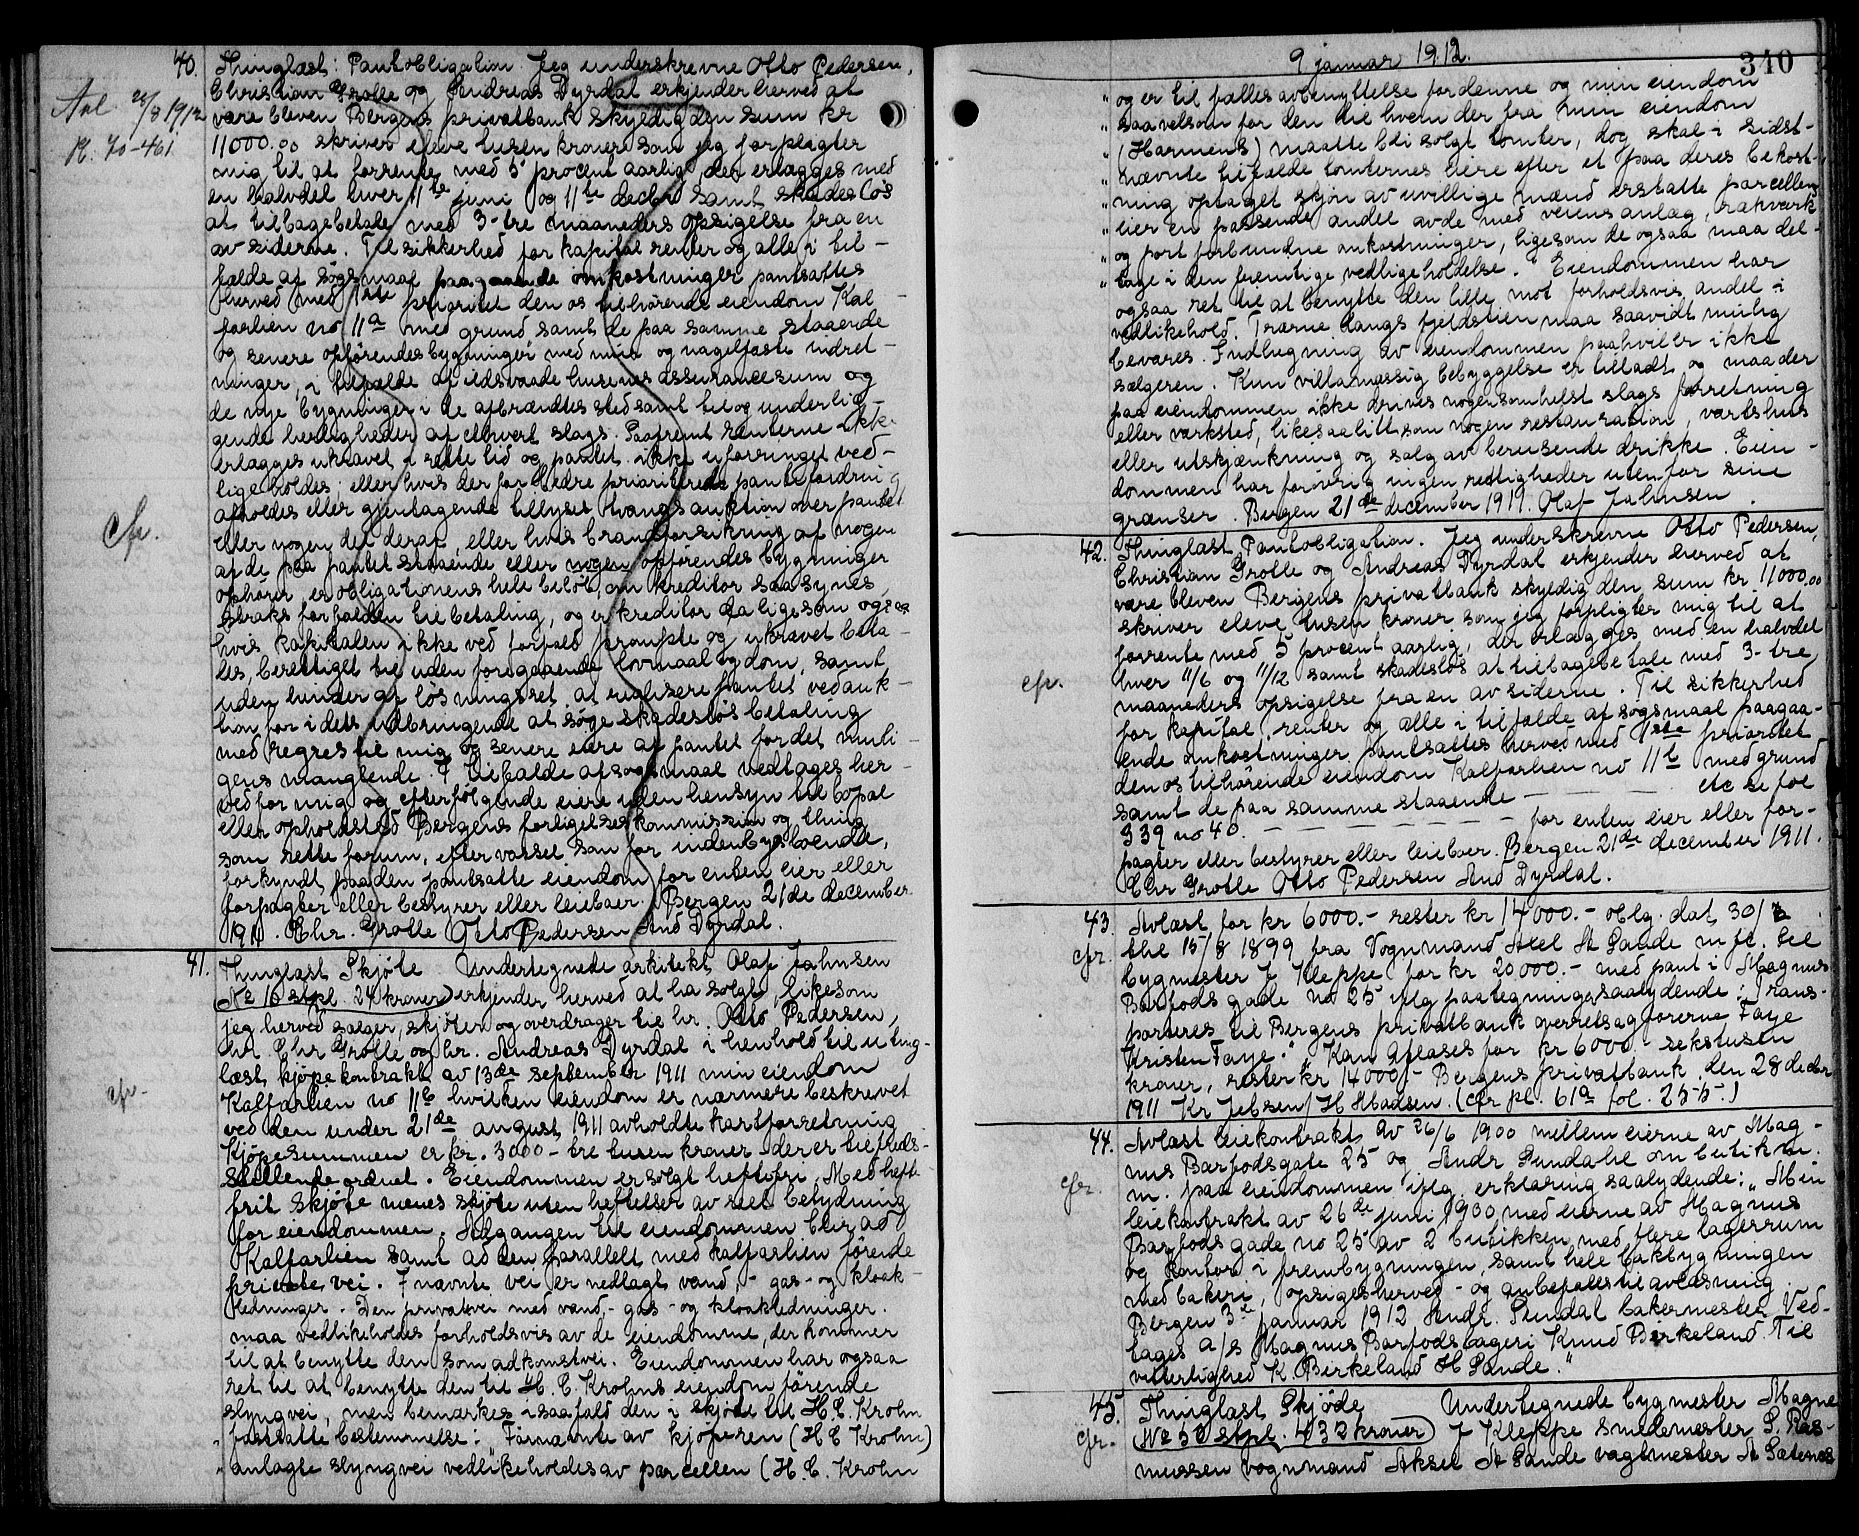 40. Thinglæst: Pantobligation. Jeg underskrevne Otto Pedersen,
Christian Grolle og Andreas Dyrdal erkjender herved at
Avl 28/8 1912 være bleven Bergens privatbank skyldig den sum kr
Pl. 70-461 11000.00 skriver eleve tusen kroner som jeg forpligter
mig til at forrente med 5 procent aarlig, der erlægges med
en halvdel hver 11te juni og 11te decbr samt skadesløs
at tilbagebetale med 3-tre maaneders opsigelse fra en
av siderne. Til sikkerhed for kapital renter og alle i til-
fælde af søgsmaal paagaaende omkostninger pantsættes
herved med 1ste prioritet den os tilhørende eiendom Kal-
farlien no 11a med grund samt de paa samme staaende
og senere opførendes bygninger med mur og nagelfaste indret-
ninger, i tilfælde af ildsvaade husenes assurancesum og
de nye bygninger i de afbrændtes sted samt til og underlig-
gende herligheder af ethvert slags. Saafremt renterne ikke
erlægges ukrævet i rette tid og pantet ikke uforringet ved-
ligeholdes, eller hvis der for bedre prioriterede pantefordring
afholdes eller gjentagende tillyses tvangsauktion over pantet
cfr. eller nogen del deraf, eller hvis brandforsikring af nogen
af de paa pantet staaende eller nogen opførendes bygninger
ophører, er obligationens hele beløb, om kreditor saa synes,
straks forfalden til betaling, og er kreditor da ligesom ogsaa
hvis kapitalen ikke ved forfald prompte og ukrævet beta-
les, berettiget til uden foregaaende lovmaal og dom, samt
uden hinder af løsningsret at realisere pantet ved auk-
tion for i dets udbringende at søge skadesløs betaling
med regres til mig og senere eiere af pantet for det muli-
gens manglende. I tilfælde af søgsmaal vedtages her-
ved for mig og efterfølgende eiere uden hensyn til bopæl
eller opholdsted Bergens forligelseskommission og thing
som rette forum, efter varsel som for indenbys boende,
forkyndt paa den pantsatte eiendom for enten eier eller
forpagter eller bestyrer eller leieboer. Bergen 21de december
1911. Chr. Grolle Otto Pedersen And Dyrdal.
41. Thinglæst Skjøte Undertegnede arkitekt Olaf Jahnsen
(No 16 stpl. 24 kroner) erkjender herved at ha solgt, likesom
jeg herved sælger, skjøter og overdrager til hr. Otto Pedersen,
hr. Chr Grolle og hr. Andreas Dyrdal i henhold til uting-
læst kjøpekontrakt av 13de september 1911 min eiendom
cfr. Kalfarlien no 11b hvilken eiendom er nærmere beskrevet
ved den under 21de august 1911 avholdte kartforretning
Kjøpesummen er kr. 3000- tre tusen kroner der er tilfreds-
stillende ordnet. Eiendommen er solgt heftefri. Med hefte-
frit skjøte menes skjøte uten heftelser av reel betydning
for eiendommen. Adgangen til eiendommen blir ad
Kalfarlien samt ad den parallelt med Kalfarlien førende
private vei. I nævnte vei er nedlagt vand,- gas- og kloak-
ledninger. Den privatvei med vand,- gas- og kloakledninger
maa vedlikeholdes forholdsvis av de eiendomme, der kommer
til at benytte den som adkomstvei. Eiendommen har ogsaa
ret til at benytte den til H. C. Krohns eiendom førende
slyngvei, men bemærkes isaafald den i skjøte til H. C. Krohn
fastsatte bestemmelse: "Førnævnte av kjøperen (H C Krohn)
"anlagte slyngvei vedlikeholdes av parcellen (H. C. Krohn
9 januar 1912. 340
"og er til fælles avbenyttelse for denne og min eiendom
"saavelsom for den til hvem der fra min eiendom
"(Harmens) maatte bli solgt tomter, dog skal i sidst-
"nævnte tilfælde tomternes eiere efter et paa deres bekost-
"ning optaget skjøn av uvillige mænd erstatte parcellens
"eier en passende andel av de med veiens anlæg, rækverk
"og port forbundne omkostninger, ligesom de ogsaa maa del-
"tage i den fremtige vedligeholdelse. Eiendommen har
ogsaa ret til at benytte den lille mot forholdsvis andel i
vedlikehold. Trærne langs fjeldstien maa saavidt mulig
bevares. Indhegning av eiendommen paahviler ikke
sælgeren. Kun villamæssig bebyggelse er tilladt og maa der
paa eiendommen ikke drives nogensomhelst slags forretning
eller verksted, likesaalitt som nogen restauration, værtshus
eller utskjænkning og salg av berusende drikke. Eien-
dommen har forøvrig ingen rettigheder utenfor sine
grænser. Bergen 21de december 1911. Olaf Jahnsen.
42. Thinglæst Pantobligation. Jeg underskrevne Otto Pedersen,
Christian Grolle og Andreas Dyrdal erkjender herved at
være bleven Bergens privatbank skyldig den sum kr 11000.00
skriver eleve tusen kroner som jeg forpligter mig til at
forrente med 5 procent aarlig, der erlægges med en halvdel
cfr. hver 11/6 og 11/12 samt skadesløs at tilbagebetale med 3-tre
maaneders opsigelse fra en av siderne. Til sikkerhed
for kapital, renter og alle i tilfælde af søgsmaal paagaa-
ende omkostninger pantsættes herved med 1ste prioritet
den os tilhørende eiendom Kalfarlien no 11b med grund
samt de paa samme staaende — — — etc se fol
339 no 40. — — — — — — for enten eier eller for-
pagter eller bestyrer eller leieboer. Bergen 21de december 1911.
Chr Grolle Otto Pedersen And Dyrdal.
43. Avlæst for kr 6000.- rester kr 14000.- oblg. dat 30/
cfr. thl 15/8 1899 fra Vognmand Axel A Sande m fl. til
bygmester J Kleppe for kr 20000.- med pant i Magnus
Barfods gade no 25 iflg paategning saalydende: "Trans-
porteres til Bergens privatbank overretssagførerne Faye
Kristen Faye." "Kan avlæses for kr 6000.- sekstusen
kroner, rester kr 14000.- Bergens privatbank den 28 decbr
1911 Kr Jebsen / H Madsen. (cfr pl. 61a fol. 255.)
44. Avlæst leiekontrakt av 26/6 1900 mellem eierne av Mag-
nus Barfodsgate 25 og Andr Sundahl om butikker
cfr. m. paa eiendommen iflg. erklæring saalydende: "Min
leiekontrakt av 26de juni 1900 med eierne av Magnus
Barfods gade no 25 av 2 butikker med flere lagerrum
og kontor i frembygningen samt hele bakbygningen
med bakeri, opsiges herved - og anbefales til avlæsning
Bergen 3de januar 1912 Andr. Sundal bakermester Ved-
tages A/s Magnus Barfods bageri Knud Birkeland. Til
vitterlighed K Birkeland H Sande."
45. Thinglæst Skjøde Undertegnede bygmester Magne
cfr. (No 50 stpl. 432 kroner) J Kleppe smedemester S. Ras-
mussen vognmand Aksel A Sande vagtmester A Sæternes